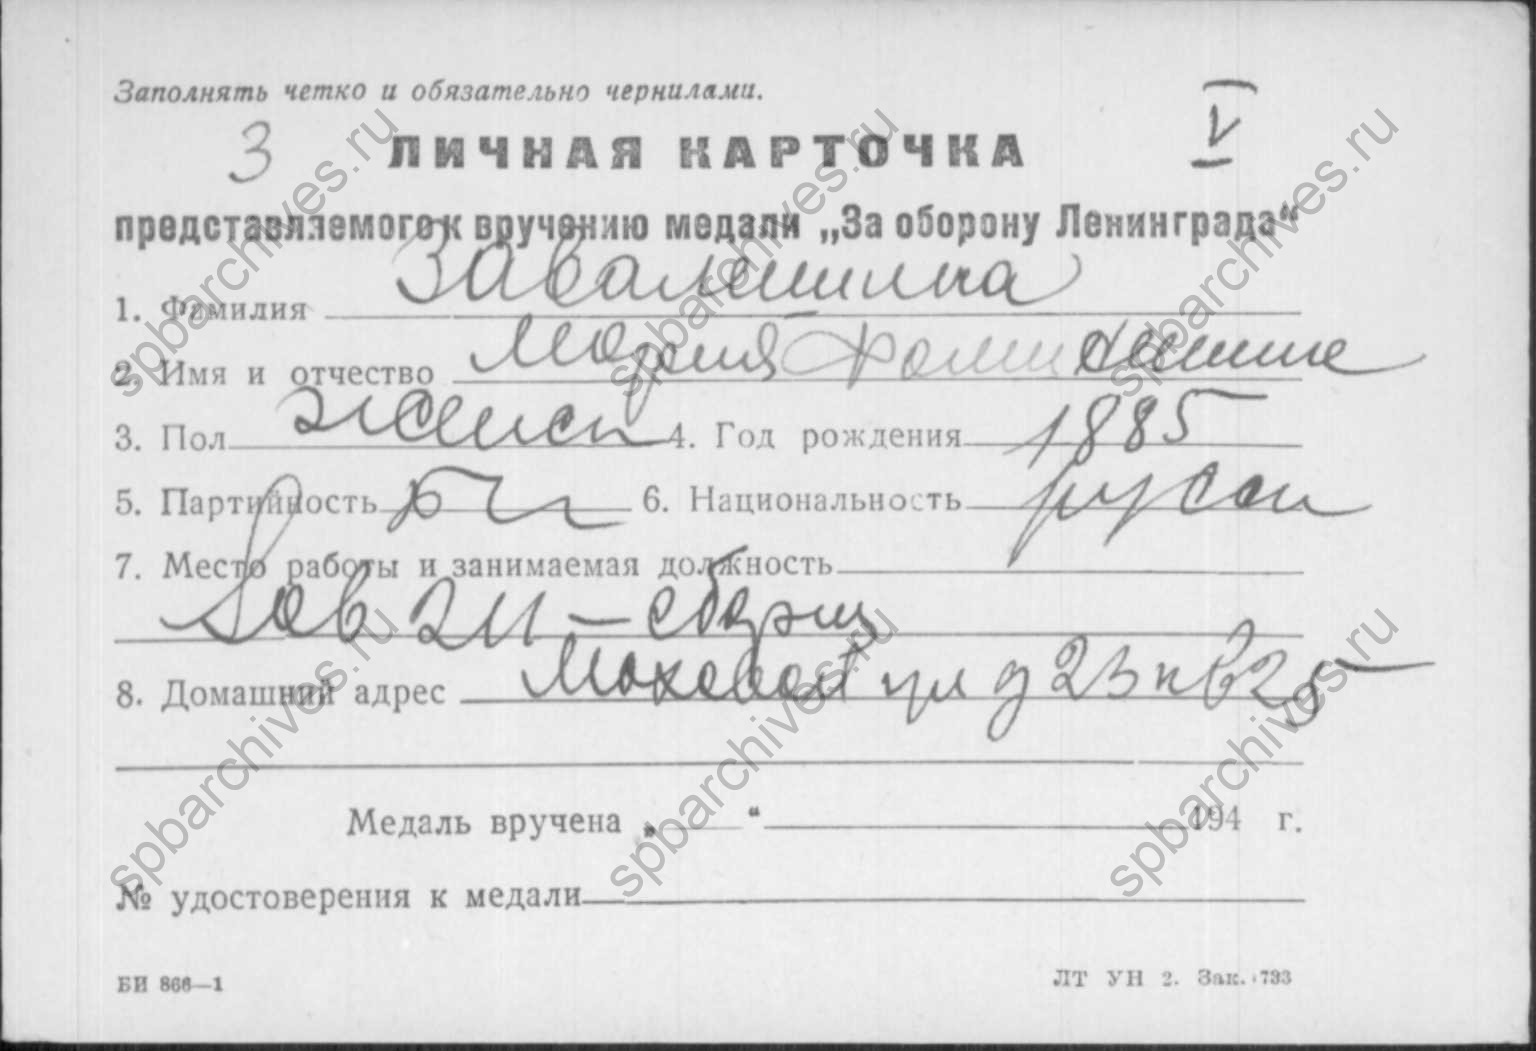 Заполнять четко и обязательно чернилами.
3 ЛИЧНАЯ КАРТОЧКА V
представляемого к вручению медали „За оборону Ленинграда“
1. Фамилия Завалишина
2. Имя и отчество Мария
3. Пол женск 4. Год рождения 1885
5. Партийность бп 6. Национальность русск
7. Место работы и занимаемая должность
8. Домашний адрес Моховая ул д 23 кв 25
Медаль вручена „ “ 194 г.
№ удостоверения к медали
БИ 866—1 ЛТ УН 2. Зак. 733
spbarchives.ru
spbarchives.ru
spbarchives.ru
spbarchives.ru
spbarchives.ru
spbarchives.ru